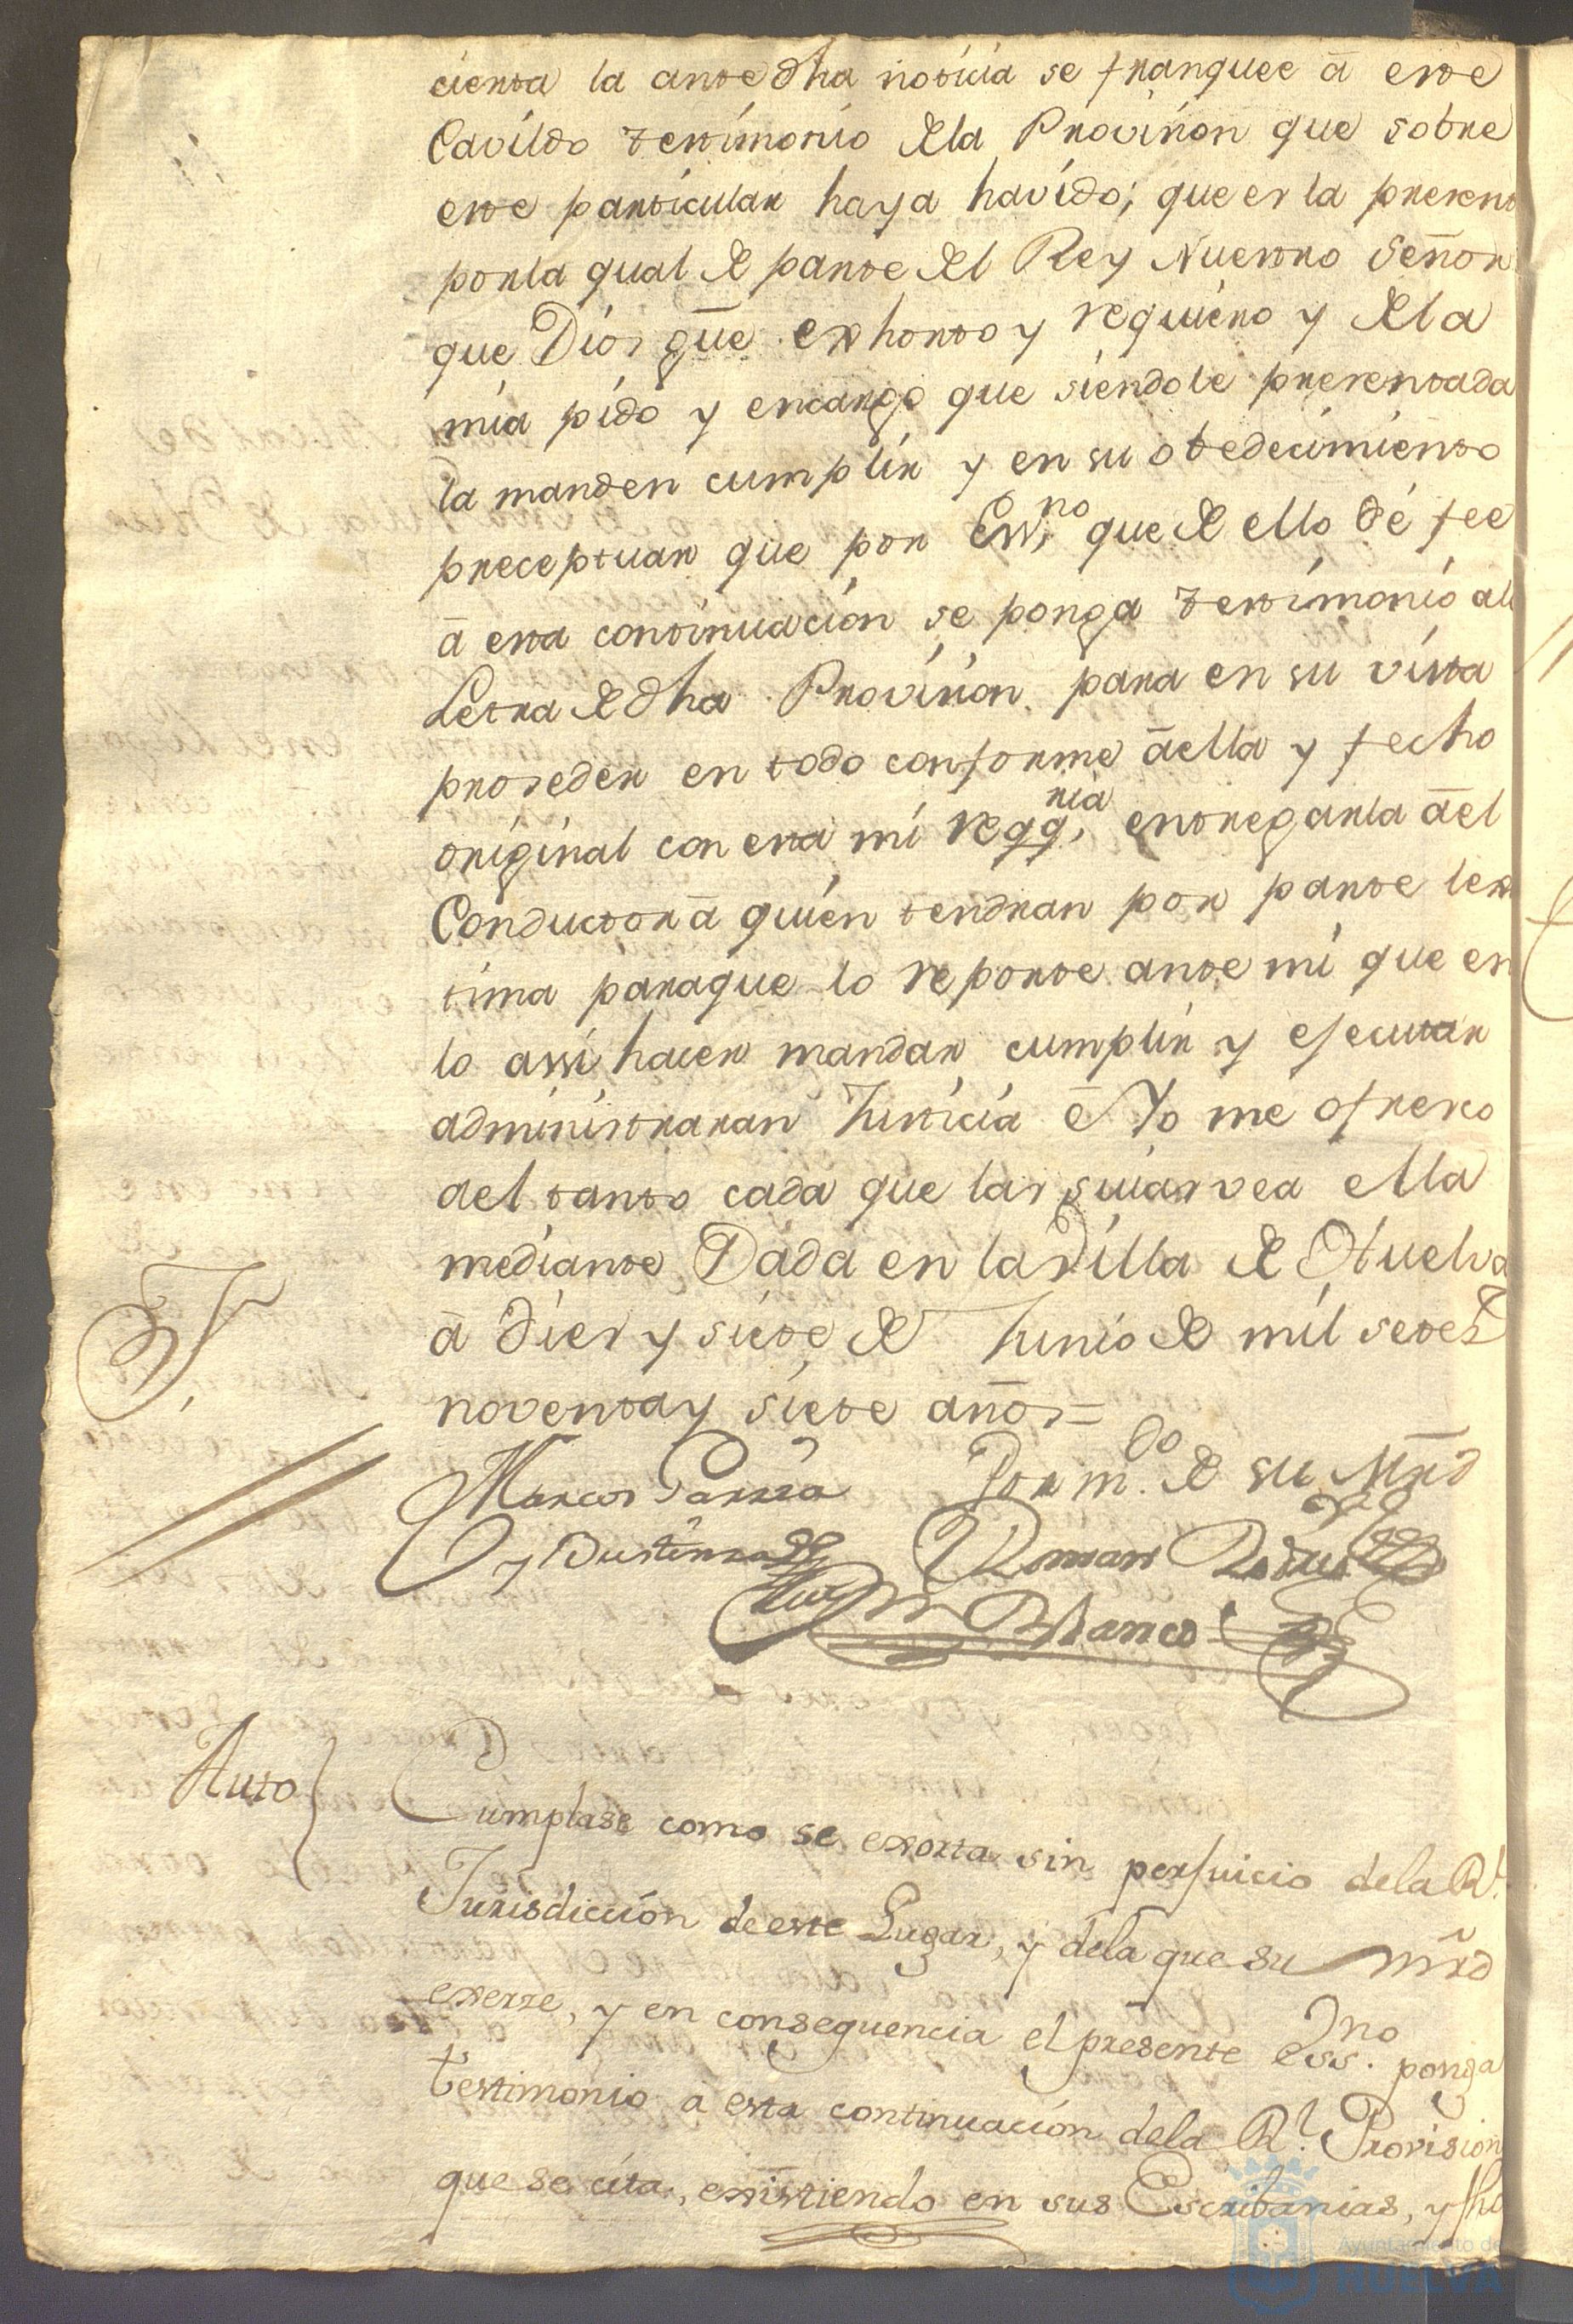 cierta la ante dha noticia se franquee â este
Cavildo testimonio de la Provision que sobre
este particular haya havido; que es la present
por la qual de parte del Rey Nuestro Señor
que Dios gũe exhorto y requiero y de la
mia pido y encargo que siendole presentada
la manden cumplir y en su obedecimiento
preceptuar que por Essno. que de ello dé fee
â esta continuacion se ponga testimonio ala
Letra de dha Provision para en su vista
proseder en todo conforme âella y fecho
original con esta mi reqqria. entregarla âel
Conductor â quien tendran por parte lex
tima paraque lo reporte ante mi que en
lo assi hacer mandar cumplir y ejecutar
administraran Justicia ê Yo me ofresco
ael tanto cada que las suias vea ella
mediante Dada en la Villa de Huelva
â dies y siete de Junio de mil setes
noventa y siete años=
Marcos Parria Por mdo. de su Mrd
y Roman Rodrig
Blanco
Auto} Cumplase como se exorta sin perjuicio dela Rl.
Jurisdiccion de este Lugar, y dela que su mrd
exerse, y en consequencia el presente Essno. ponga
testimonio a esta continuacion dela Rl. Provision
que se cita, existiendo en sus Escribanias, y fho
Ayuntamiento de
HUELVA